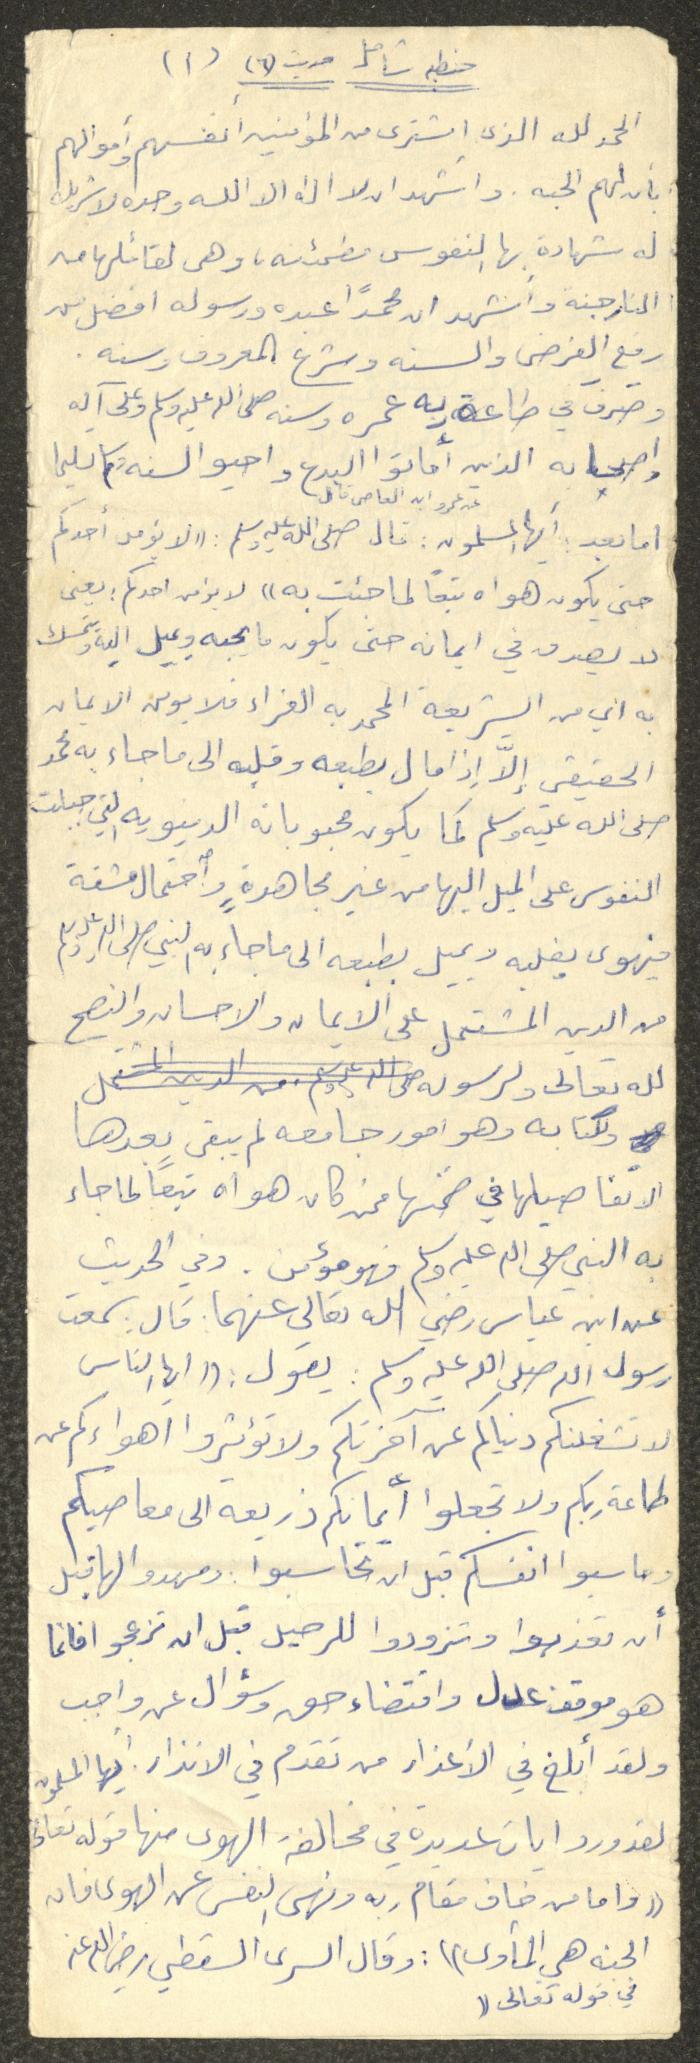 خطبه شامل حديث (٦) (١)
الحمد لله الذى اشترى من المؤمنين أنفسهم وأموالهم
بأن لهم الجنه . واشهد ان لا اله الا الله وحده لا شريك
له شهادة بها النفوس مطمئنه ، وهى لقائلها من
النار جنة وأشهد ان محمدًا عبده ورسوله افضل من
رفع الفرض والسنه وشرع المعروف وسنه .
وصرف في طاعة ربه عمره وسنه صلى الله عليه وسلم وعلى آله
واصحابه الذين أماتوا البدع واحيو السنه وسلم تسليما
عن عمرو ابن العاص قال
اما بعد : أيها المسلمون : قال صلى الله عليه وسلم : (( لا يؤمن أحدكم
حتى يكون هواه تبعًا لما جئت به )) لا يؤمن احدكم : يعنى
لا يصدق في ايمانه حتى يكون ما يحبه ويميل اليه ويتمسك
به اي من الشريعة المحمديه الغراء فلا يؤمن الايمان
الحقيقي إلَّا إذا مال بطبعه وقلبه الى ما جاء به محمد
صلى الله عليه وسلم كما يكون محبوباته الدينويه التي جبلت
النفوس على الميل اليها من غير مجاهدةٍ واحتمال مشقة
فيهوى بقلبه ويميل بطبعه الى ما جاء به النبي صلى الله عليه وسلم
من الدين المشتمل على الايمان والاحسان والنصح
لله تعالى ولرسوله صلى الله عليه وسلم . من الدين المشتمل
ولكتابه وهو امور جامعه لم يبقى بعدها
الا تفاصيلها في ضمنها فمن كان هواه تبعًا لما جاء
به النبي صلى الله عليه وسلم فهو مؤمن . وفي الحديث
عن ابن عباس رضي الله تعالى عنهما . قال : سمعت
رسول الله صلى الله عليه وسلم : يقول : (( ايها الناس
لا تشغلنكم دنياكم عن آخرتكم ولا تؤثروا اهواءكم عن
طاعة ربكم ولا تجعلوا أيمانكم ذريعة الى معاصيكم
وحاسبوا انفسكم قبل ان تحاسبوا . ومهدوا لها قبل
أن تعذبوا وتزودوا للرحيل قبل ان تزعجوا فانما
هو موقف عدل واقتضاء حق وسؤال عن واجب
ولقد أبلغ في الأعذار من تقدم في الانذار . أيها المسلمون
لقد ورد ايات عديدة في مخالفة الهوى منها قوله تعالى
(( واما من خاف مقام ربه ونهى النفس عن الهوى فان
الجنه هي المأوى )) : وقال السرى السقطي رضي الله عنه
في قوله تعالى ((